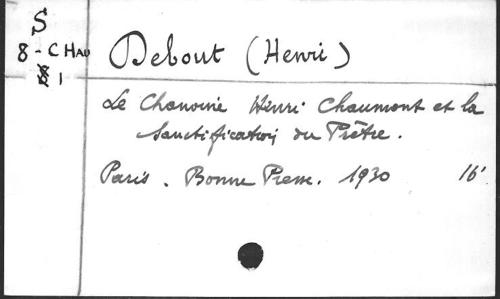 S
8 - CHAU
1
Debout (Henri)
Le Chanoine Henri Chaumont et la
Sanctification du Prêtre.
Paris. Bonne Presse. 1930 16'